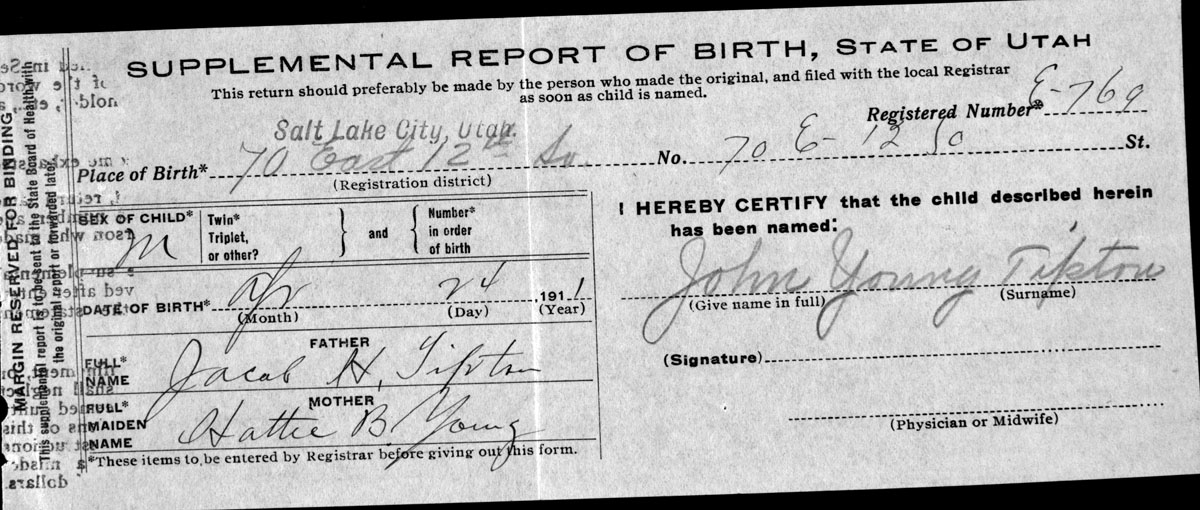 SUPPLEMENTAL REPORT OF BIRTH, STATE OF UTAH
This return should preferably be made by the person who made the original, and filed with the local Registrar
as soon as child is named.
Registered Number* E-769
Salt Lake City, Utah.
Place of Birth* 70 East 12th So. No. 70 E- 12 So St.
(Registration district)
SEX OF CHILD* M
Twin*
Triplet,
or other?
} and {
Number*
in order
of birth
DATE OF BIRTH* Apr 24, 1911
(Month) (Day) (Year)
FATHER
FULL* NAME Jacob H, Tipton
MOTHER
FULL* MAIDEN NAME Hattie B. Young
*These items to be entered by Registrar before giving out this form.
I HEREBY CERTIFY that the child described herein
has been named:
John Young Tipton
(Give name in full) (Surname)
(Signature)
(Physician or Midwife)
MARGIN RESERVED FOR BINDING
This supplemental report is to be sent to the State Board of Health with
the original report or forwarded later.